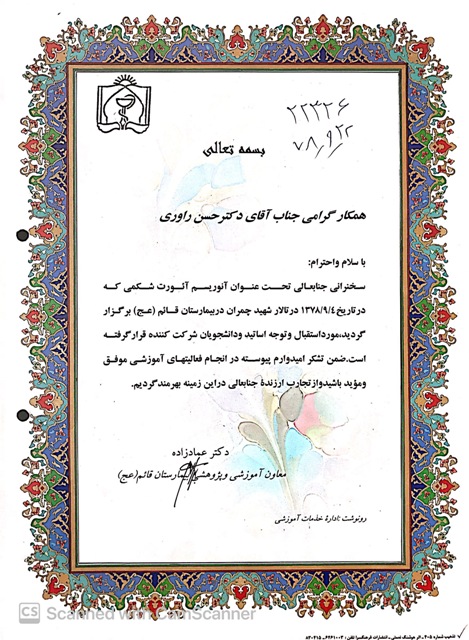 ۲۲۳۲۶
۷۸٫۹٫۲۲
بسمه تعالی
همکار گرامی جناب آقای دکترحسن راوری
با سلام واحترام:
سخنرانی جنابعالی تحت عنوان آنوریسم آئورت شکمی که
درتاریخ ۱۳۷۸/۹/٤ درتالار شهید چمران دربیمارستان قائم (عج) برگزار
گردید،مورداستقبال وتوجه اساتید ودانشجویان شرکت کننده قرارگرفته
است.ضمن تشکر امیدوارم پیوسته در انجام فعالیتهای آموزشی موفق
ومؤید باشیدوازتجارب ارزندهٔ جنابعالی دراین زمینه بهرمندگردیم.
دکتر عمادزاده
معاون آموزشی وپژوهشی بیمارستان قائم(عج)
رونوشت :ادارهٔ خدمات آموزشی
CS Scanned with CamScanner